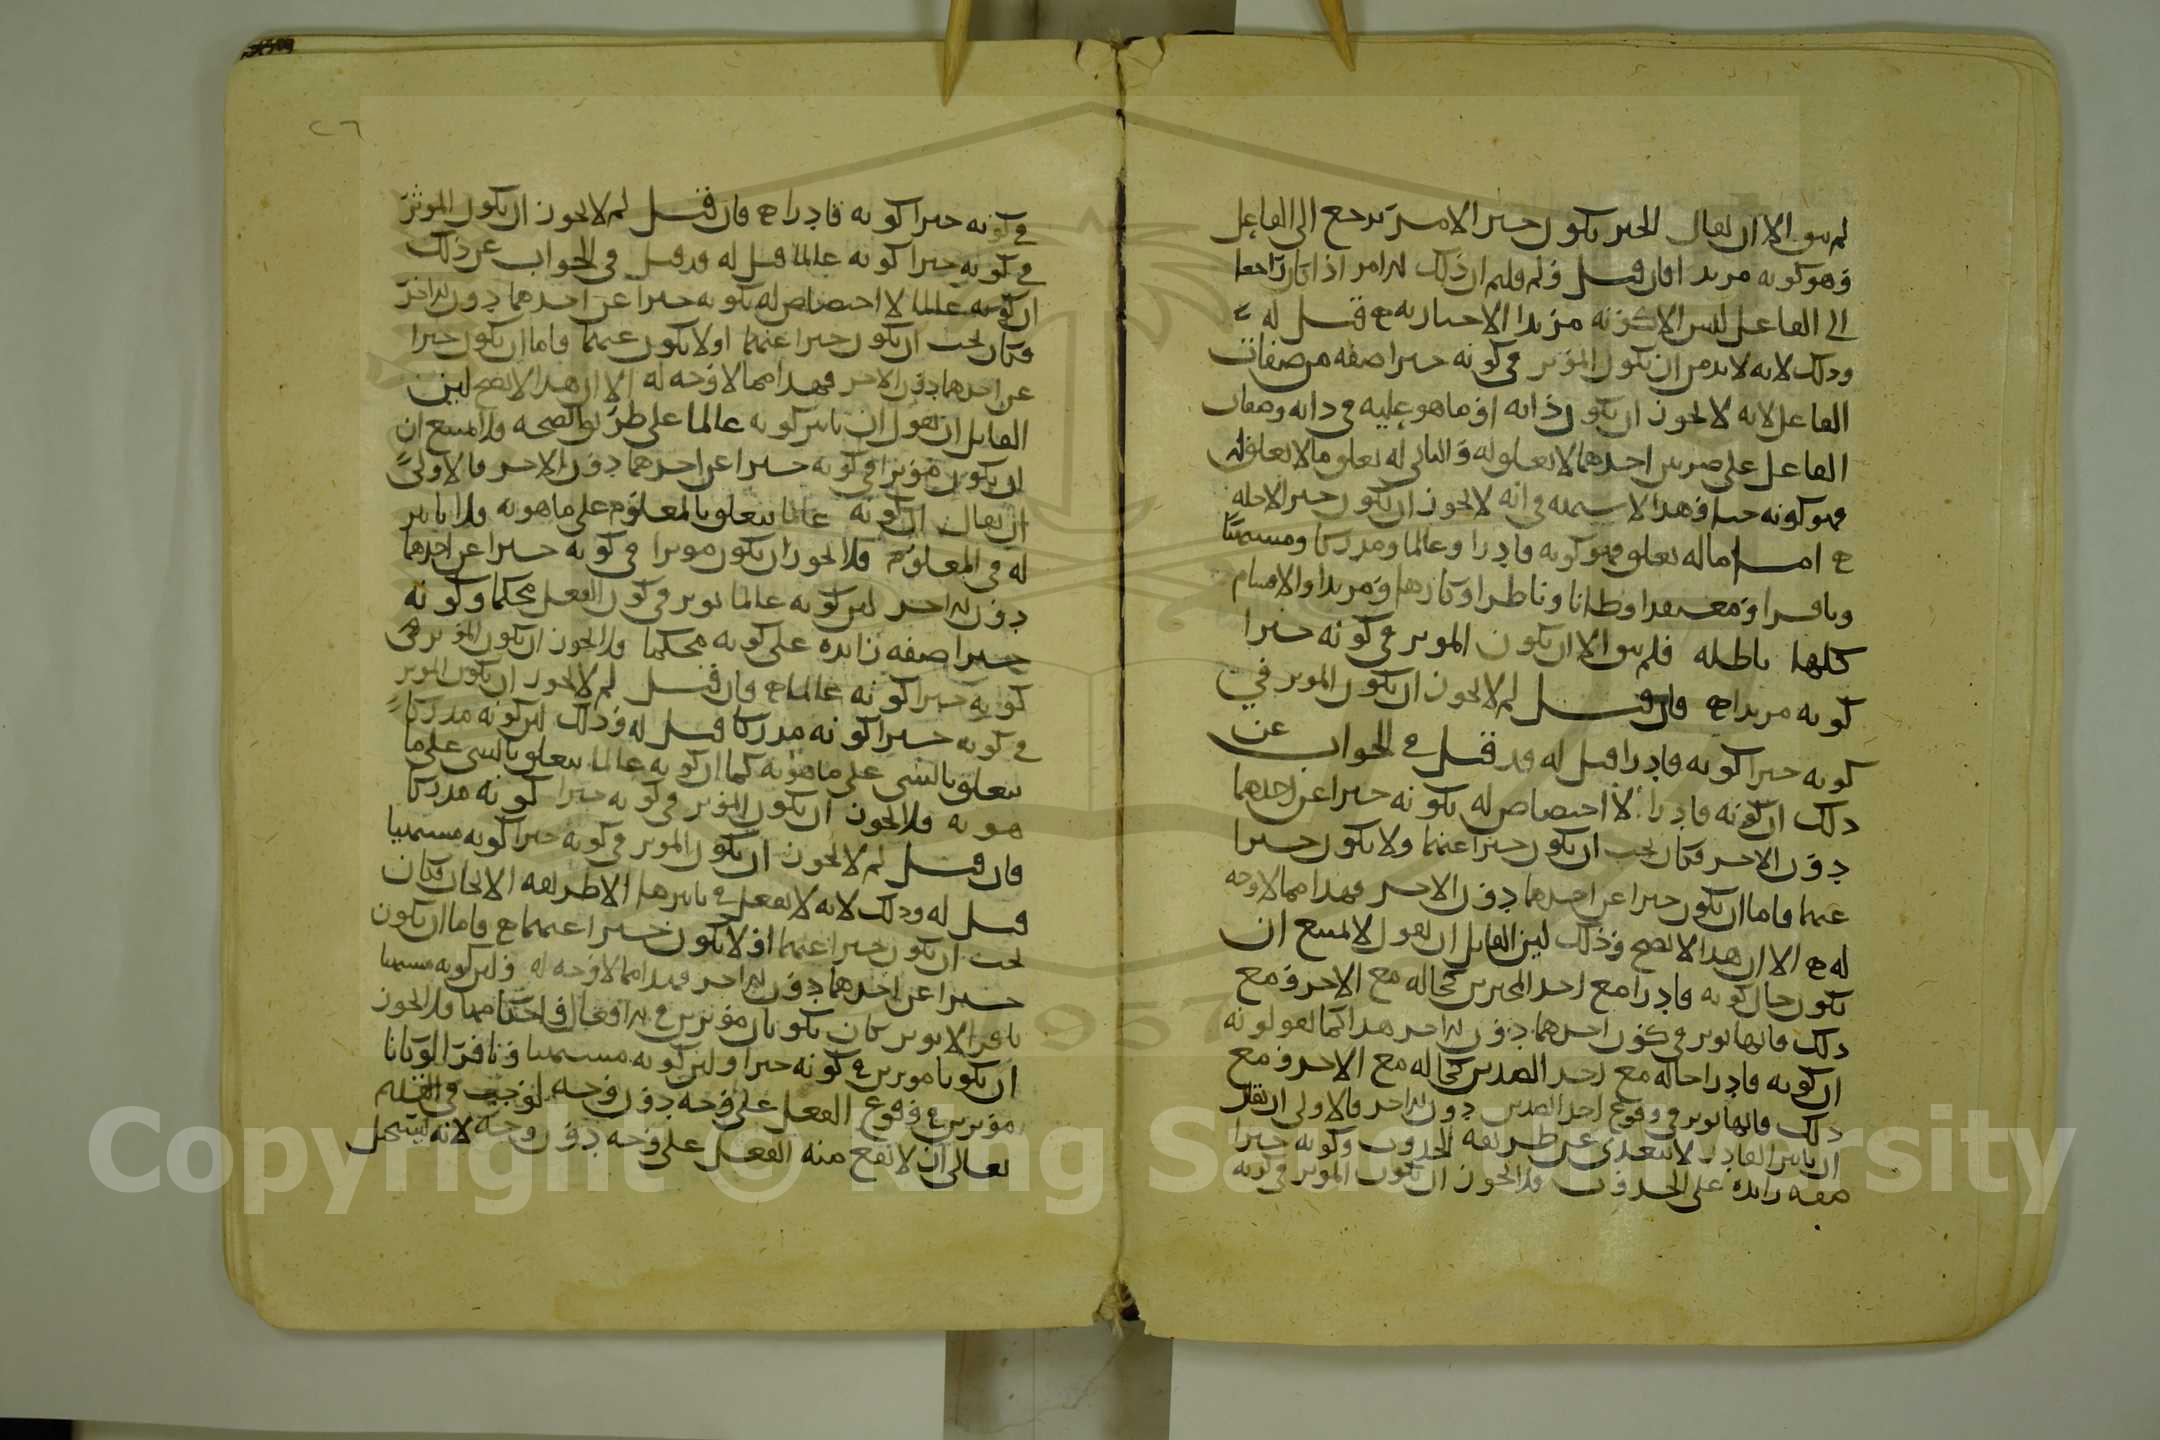 لم يبق الا ان يقال الخبر يكون خبرا لامر يرجع الى الفاعل
وهو كونه مريدا فان قيل ولم قلتم ان ذلك الامر اذا كان راجعا
الى الفاعل ليس الا كونه مريدا للاخبار به قيل له
وذلك لانه لا بد من ان يكون المؤثر في كونه خبرا صفه من صفات
الفاعل لانه لا يجوز ان يكون ذاته او ما هو عليه في ذاته وصفات
الفاعل على ضربين احدهما لا تعلق له والثاني له تعلق ما لا تعلق له
فهو كونه حيا فهذا لا شبهه في انه لا يجوز ان يكون خبرا لاجله
اما ما له تعلق فهو كونه قادرا وعالما ومدركا ومشتهيا
ونافرا ومعتقدا وظانا وناظرا وكارها ومريدا والاقسام
كلها باطله فلم يبق الا ان يكون الموثر في كونه خبرا
كونه مريدا فان قيل لم لا يجوز ان يكون الموثر في
كونه خبرا كونه قادرا قيل له قد قيل في الجواب عن
ذلك ان كونه قادرا لا اختصاص له بكونه خبرا عن احدهما
دون الاخر فكان يجب ان يكون خبرا عنهما ولا يكون خبرا
عنهما فاما ان يكون خبرا عن احدهما دون الاخر فهذا مما لا وجه
له الا ان هذا لا يصح وذلك لان القايل ان يقول لا يمتنع ان
يكون حال كونه قادرا مع احد المخبرين كحاله مع الاخر ومع
ذلك فانها توثر في كون احدهما دون الاخر هذا كما تقولونه
ان كونه قادرا حاله مع احد الضدين كحاله مع الاخر ومع
ذلك فانها توثر في وقوع احد الضدين دون الاخر فالاولى ان يقال
ان تاثير القادر لا يتعدى عن طريقه الحدوث وكونه خبرا
صفه زائده على الحدوث فلا يجوز ان يكون الموثر في كونه
٢٦
في كونه خبرا كونه قادرا فان قيل لم لا يجوز ان يكون الموثر
في كونه خبرا كونه عالما قيل له قد قيل في الجواب عن ذلك
ان كونه عالما لا اختصاص له بكونه خبرا عن احدهما دون الاخر
فكان يجب ان يكون خبرا عنهما او لا يكون عنهما فاما ان يكون خبرا
عن احدهما دون الاخر فهذا مما لا وجه له الا ان هذا لا يصح لان
القايل ان يقول ان تاثير كونه عالما على طريق الصحه فلا يمتنع ان
ان يكون مؤثرا في كونه خبرا عن احدهما دون الاخر فالاولى
ان يقال ان كونه عالما يتعلق بالمعلوم على ما هو به ولا تاثير
له في المعلوم فلا يجوز ان يكون موثرا في كونه خبرا عن احدهما
دون الاخر لان كونه عالما يوثر في كون الفعل محكما وكونه
خبرا صفه زائده على كونه محكما فلا يجوز ان يكون المؤثر في
كونه خبرا كونه عالما فان قيل لم لا يجوز ان يكون الموثر
في كونه خبرا كونه مدركا قيل له وذلك لان كونه مدركا
يتعلق بالشي على ما هو به كما ان كونه عالما يتعلق بالشي على ما
هو به فلا يجوز ان يكون المؤثر في كونه خبرا كونه مدركا
فان قيل لم لا يجوز ان يكون الموثر في كونه خبرا كونه مشتهيا
قيل له وذلك لانه لا يعقل في تاثيرها الا طريقه الايجاب فكان
يجب ان يكون خبرا عنهما او لا يكون خبرا عنهما فاما ان يكون
خبرا عن احدهما دون الاخر فهذا مما لا وجه له ولان كونه مشتهيا
نافرا لا يوثر كان يكونان مؤثرين في الافعال فلا يجوز
ان يكونا موثرين في كونه خبرا ولان كونه مشتهيا ونافرا لو كانا
مؤثرين في وقوع الفعل على وجه دون وجه لوجب في القديم
تعالى ان لا يقع منه الفعل على وجه دون وجه لانه يستحيل
Copyright © King Saud University
1957